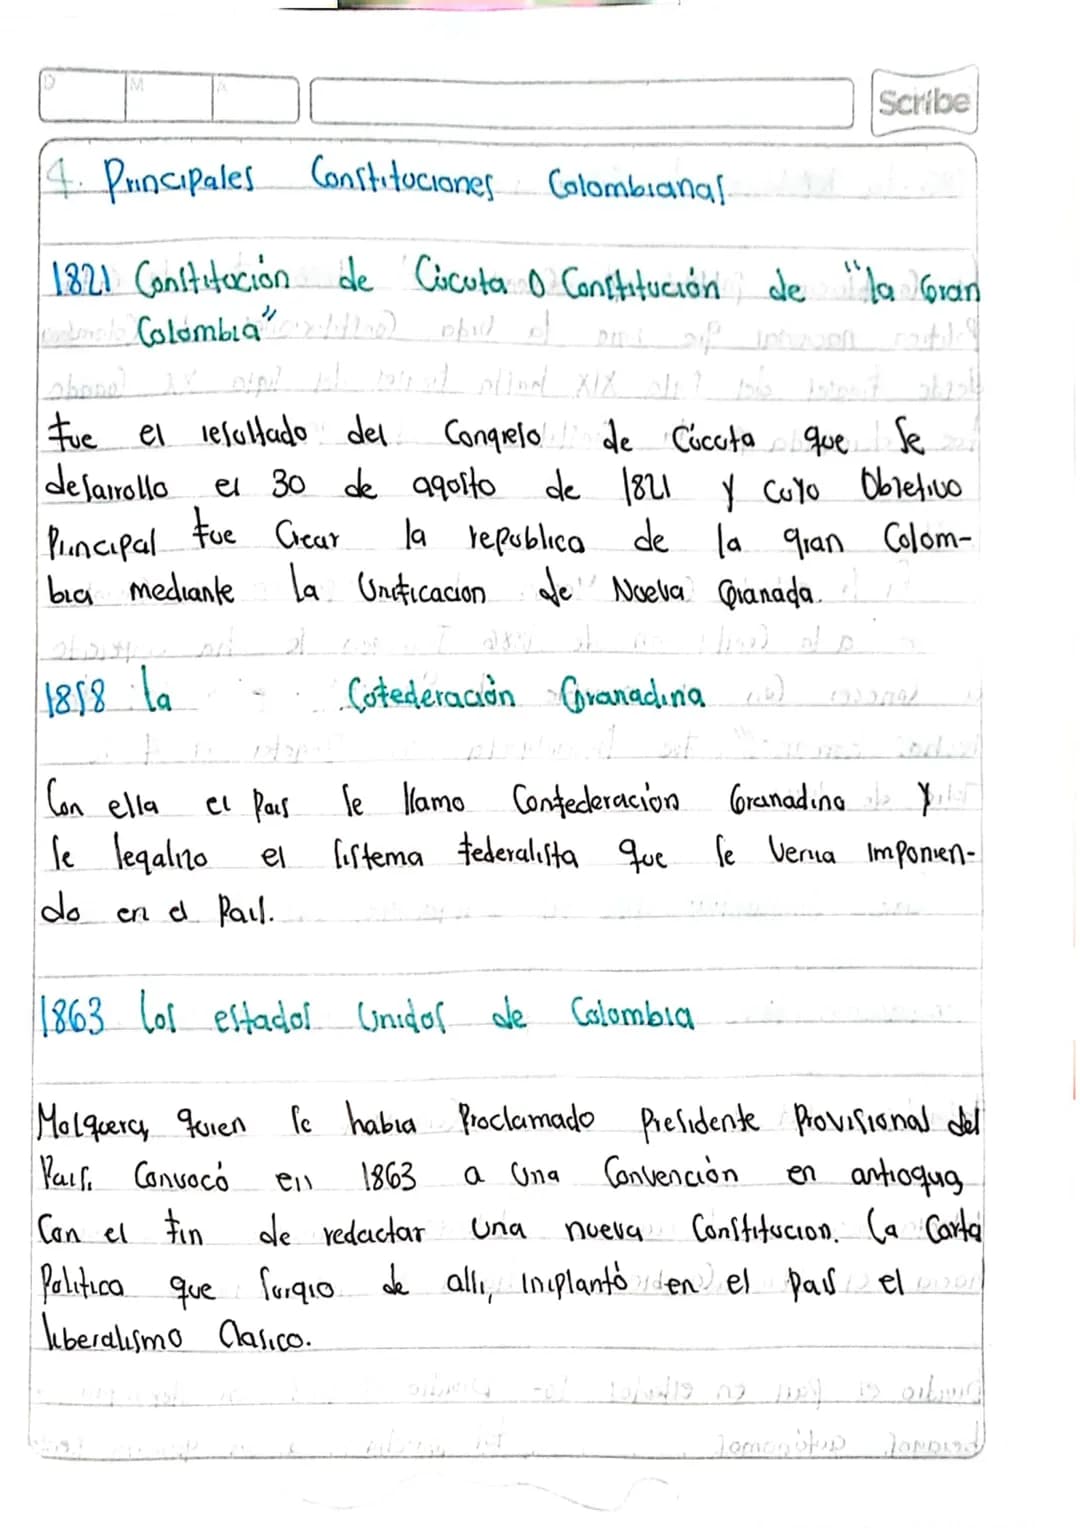 D M A
Scribe
4. Principales Constituciones Colombianas
1821 Constitución de Cúcuta O Constitución de "la Gran
Colombia"
fue el resultado del Congreso de Cúcuta que se
desarrollo el 30 de agosto de 1821 y cuyo Objetivo
Principal fue Crear la republica de la gran Colom-
bia mediante la Unificacion de Nueva Granada.
1858 la Cofederación Granadina
Con ella el Pais se llamo Confederacion Granadina y
se legalizo el sistema federalista que se venia imponien-
do en el Pais.
1863 los estados Unidos de Colombia
Mosquera, quien se habia Proclamado Presidente Provisional del
Pais. Convocó en 1863 a una Convención en antioquia
Con el fin de redactar una nueva Constitucion. La Carta
Politica que surgio de alli, implantó en el pais el
liberalismo Clasico.